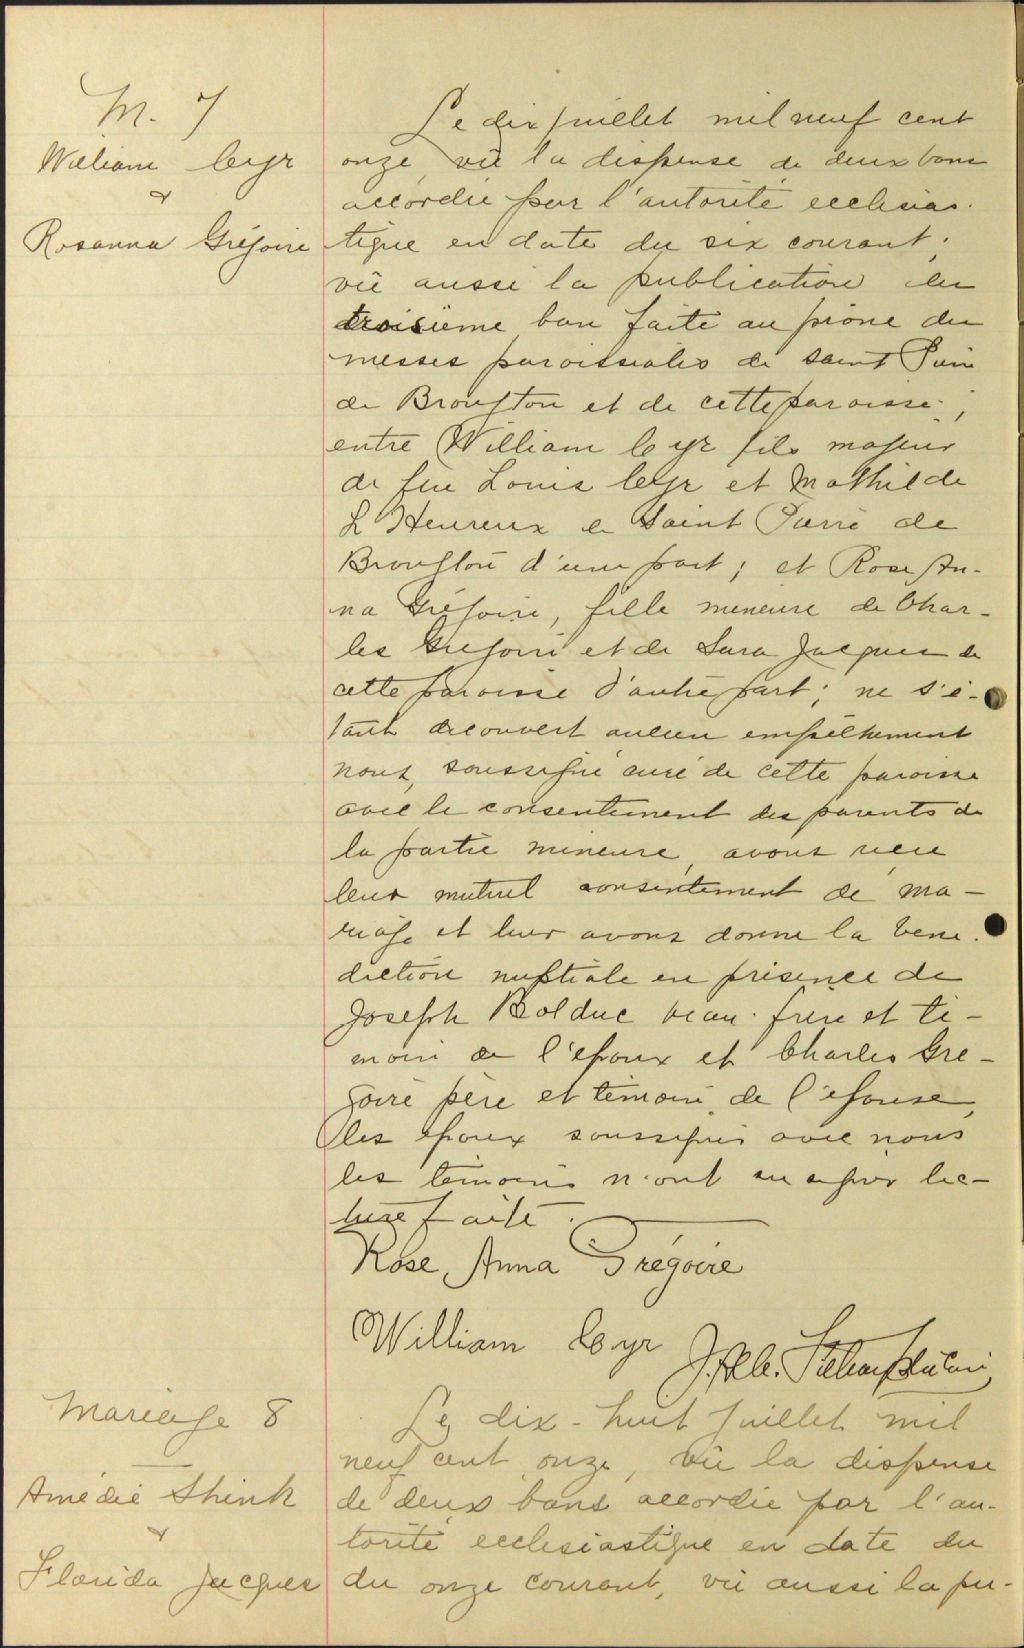 M. 7
William Cyr
&
Rosanna Grégoire
Le dix juillet mil neuf cent
onze, vû la dispense de deux bans
accordée par l'autorité ecclésias-
tique en date du six courant;
vû aussi la publication du
troisième ban faite au prône des
messes paroissiales de Saint Pierre
de Broughton et de cette paroisse;
entre William Cyr fils majeur
de feu Louis Cyr et Mathilde
L'Heureux de Saint Pierre de
Broughton d'une part; et Rose An-
na Grégoire, fille mineure de Char-
les Grégoire et de Sara Jacques de
cette paroisse d'autre part; ne s'é-
tant découvert aucun empêchement
nous, soussigné curé de cette paroisse
avec le consentement des parents de
la partie mineure, avons reçu
leur mutuel consentement de ma-
riage et leur avons donné la béné-
diction nuptiale en présence de
Joseph Bolduc beau-frère et té-
moin de l'époux et Charles Gré-
goire père et témoin de l'épouse,
les époux soussignés avec nous
les témoins n'ont su signer lec-
ture faite.
Rose Anna Grégoire
William Cyr
Mariage 8
Amédée Shink
&
Florida Jacques
Le dix-huit juillet mil
neuf cent onze, vû la dispense
de deux bans accordée par l'au-
torité ecclésiastique en date du
du onze courant, vû aussi la pu-